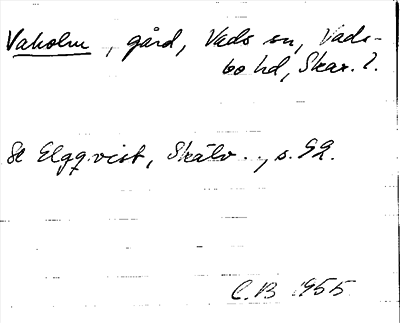 Vaholm, gård, Vads sn, Vads-
bo hd, Skar. l.
Se Elgqvist, Skälv.., s. 92.
C.B 1955